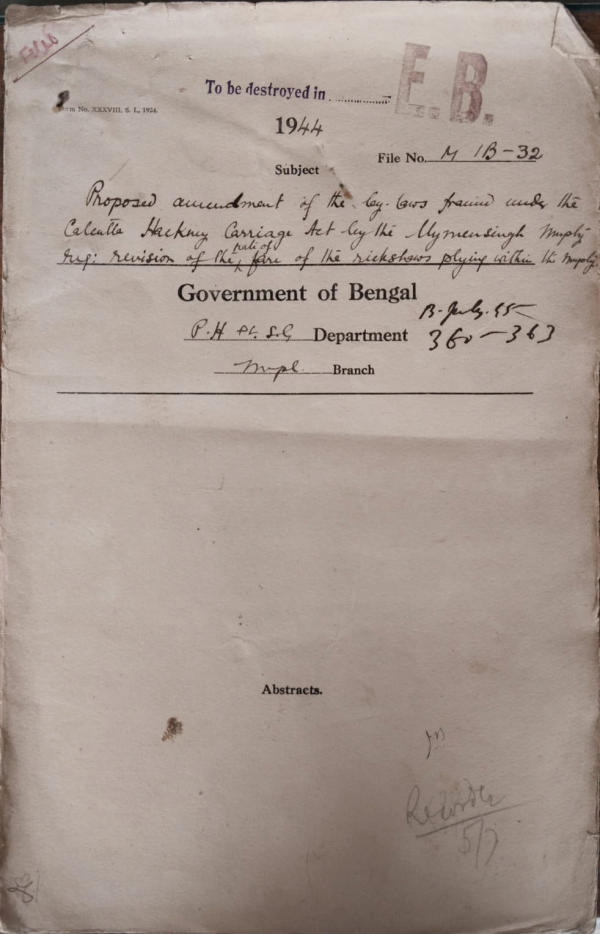 Filed
To be destroyed in ............
E.B.
Form No. XXXVIII. S. I., 1924.
1944
File No. M 1B-32
Subject
Proposed amendment of the by-laws framed under the
Calcutta Hackney Carriage Act by the Mymensingh Mupty
reg: revision of the rate of fare of the rickshaws plying within the Mupty.
Government of Bengal
B. July. 45
P.H & L.S.G Department 360-363
Mpl. Branch
Abstracts.
5/7